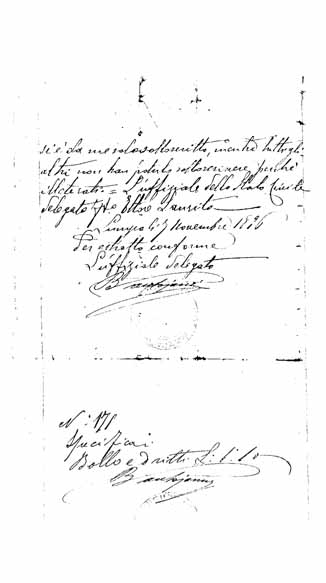 si è da me solo sottoscritto, mentre tutti gli
altri non han potuto sottoscrivere perchè
illetterati = L'uffiziale dello Stato Civile
delegato Ettore Laurito
li 9 Novembre 1896
Per estratto conforme
L'uffiziale delegato
N: 178
Specifica:
Bollo e dritti L: 1:10